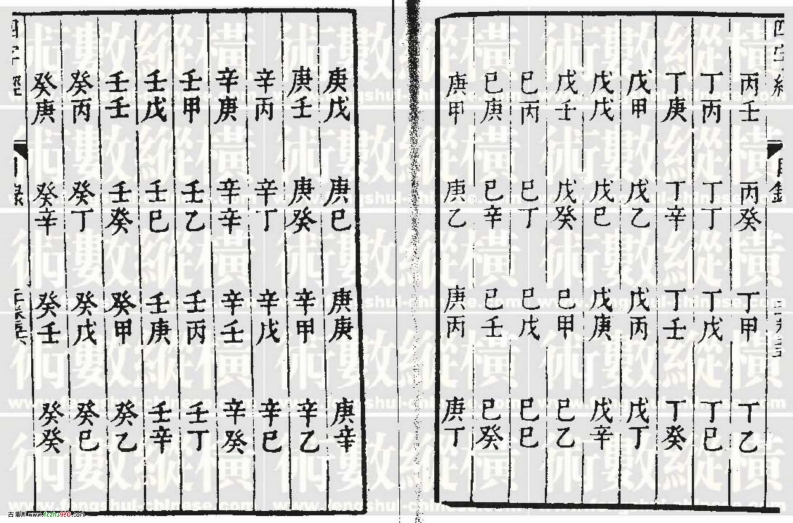 丙壬 丙癸 丁甲 丁乙
丁丙 丁丁 丁戊 丁巳
丁庚 丁辛 丁壬 丁癸
戊甲 戊乙 戊丙 戊丁
戊戊 戊巳 戊庚 戊辛
戊壬 戊癸 巳甲 巳乙
巳丙 巳丁 巳戊 巳巳
巳庚 巳辛 巳壬 巳癸
庚甲 庚乙 庚丙 庚丁
庚戊 庚巳 庚庚 庚辛
庚壬 庚癸 辛甲 辛乙
辛丙 辛丁 辛戊 辛巳
辛庚 辛辛 辛壬 辛癸
壬甲 壬乙 壬丙 壬丁
壬戊 壬巳 壬庚 壬辛
壬壬 壬癸 癸甲 癸乙
癸丙 癸丁 癸戊 癸巳
癸庚 癸辛 癸壬 癸癸
四字經 目錄
術數縱橫
www.fengshui-chinese.com